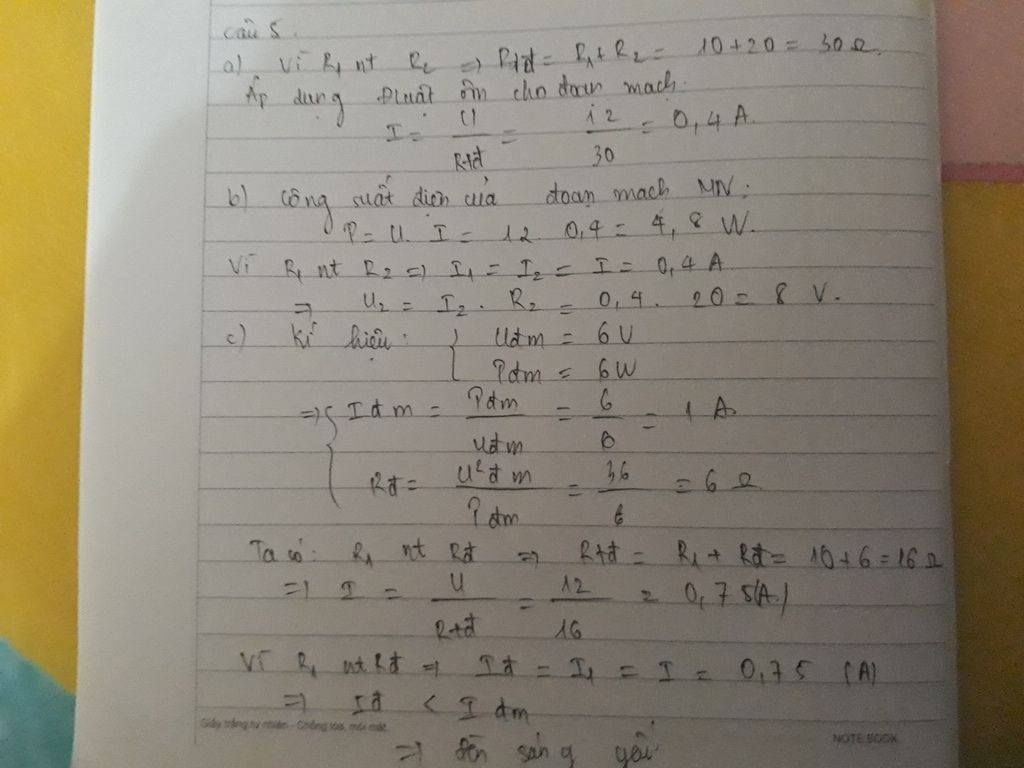 Câu 5.
a) Vì R₁ nt R₂ => Rtđ = R₁ + R₂ = 10 + 20 = 30 Ω.
Áp dụng Đluật ôm cho đoạn mạch:
I = U/Rtđ = 12/30 = 0,4 A.
b) Công suất điện của đoạn mạch MN:
P = U. I = 12. 0,4 = 4,8 W.
Vì R₁ nt R₂ => I₁ = I₂ = I = 0,4 A
=> U₂ = I₂ . R₂ = 0,4 . 20 = 8 V.
c) Kí hiệu: { Uđm = 6V
Pđm = 6W
=> { Iđm = Pđm/Uđm = 6/6 = 1 A
Rđ = U²đm/Pđm = 36/6 = 6 Ω
Ta có: R₁ nt Rđ => Rtđ = R₁ + Rđ = 10 + 6 = 16 Ω
=> I = U/Rtđ = 12/16 = 0,75(A)
Vì R₁ nt Rđ => Iđ = I₁ = I = 0,75 (A)
=> Iđ < Iđm
Giấy trắng tự nhiên - Chống lóa, mỏi mắt
NOTE BOOK
=> đèn sáng yếu.